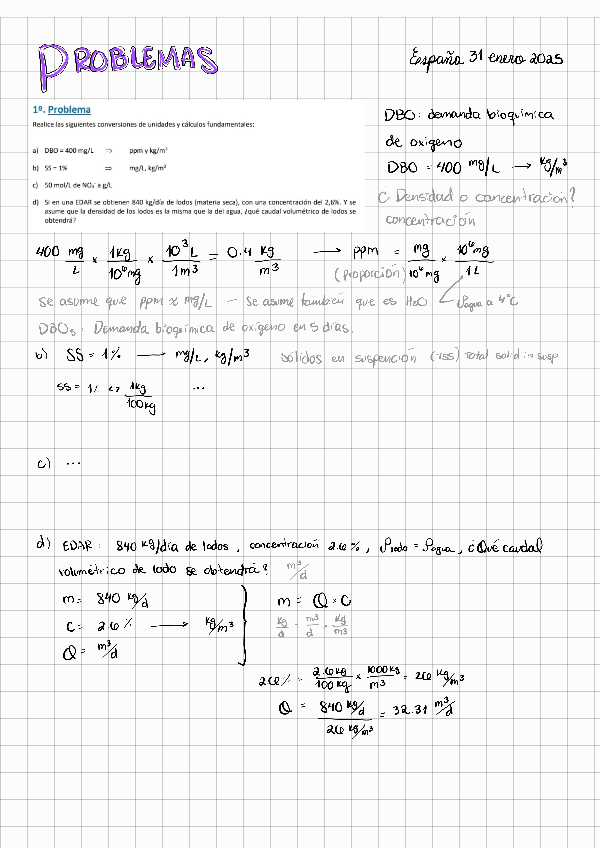 PROBLEMAS
España 31 enero 2025
1º. Problema
Realice las siguientes conversiones de unidades y cálculos fundamentales:
a) DBO = 400 mg/L ⇒ ppm y kg/m³
b) SS = 1% ⇒ mg/L, kg/m³
c) 50 mol/L de NO₃⁻ a g/L
d) Si en una EDAR se obtienen 840 kg/día de lodos (materia seca), con una concentración del 2,6%. Y se
asume que la densidad de los lodos es la misma que la del agua, ¿qué caudal volumétrico de lodos se
obtendrá?
DBO: demanda bioquímica
de oxigeno
DBO = 400 mg/L → kg/m³
¿ Densidad o concentracion?
concentración
400 mg/L × 1kg/10⁶mg × 10³L/1m³ = 0.4 kg/m³ → ppm = mg/10⁶mg × 10⁶mg/1L
(proporción)
Se asume que ppm ≈ mg/L – Se asume también que es H₂O. ρagua a 4°C
DBO₅: Demanda bioquímica de oxigeno en 5 dias.
b) SS = 1% → mg/L, kg/m³ sólidos en suspención (TSS) total solid in susp
SS = 1% <> 1kg/100kg ...
c) ...
d) EDAR: 840 kg/día de lodos, concentración 2.6%, ρlodo = ρagua, ¿Qué caudal
volumétrico de lodo se obtendrá? m³/d
m = 840 kg/d
m = Q × C
C = 2.6% → kg/m³
kg/d = m³/d × kg/m³
Q = m³/d
26% = 2.6kg/100kg × 1000kg/m³ = 26 kg/m³
Q = 840 kg/d / 26 kg/m³ = 32.31 m³/d